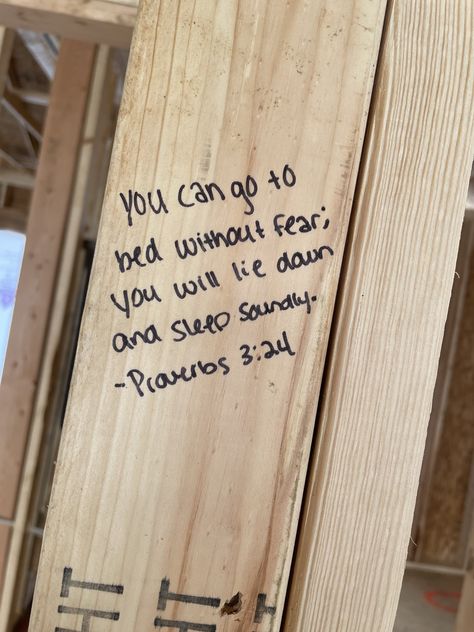 You can go to
bed without fear;
you will lie down
and sleep soundly.
-Proverbs 3:24
HT HT